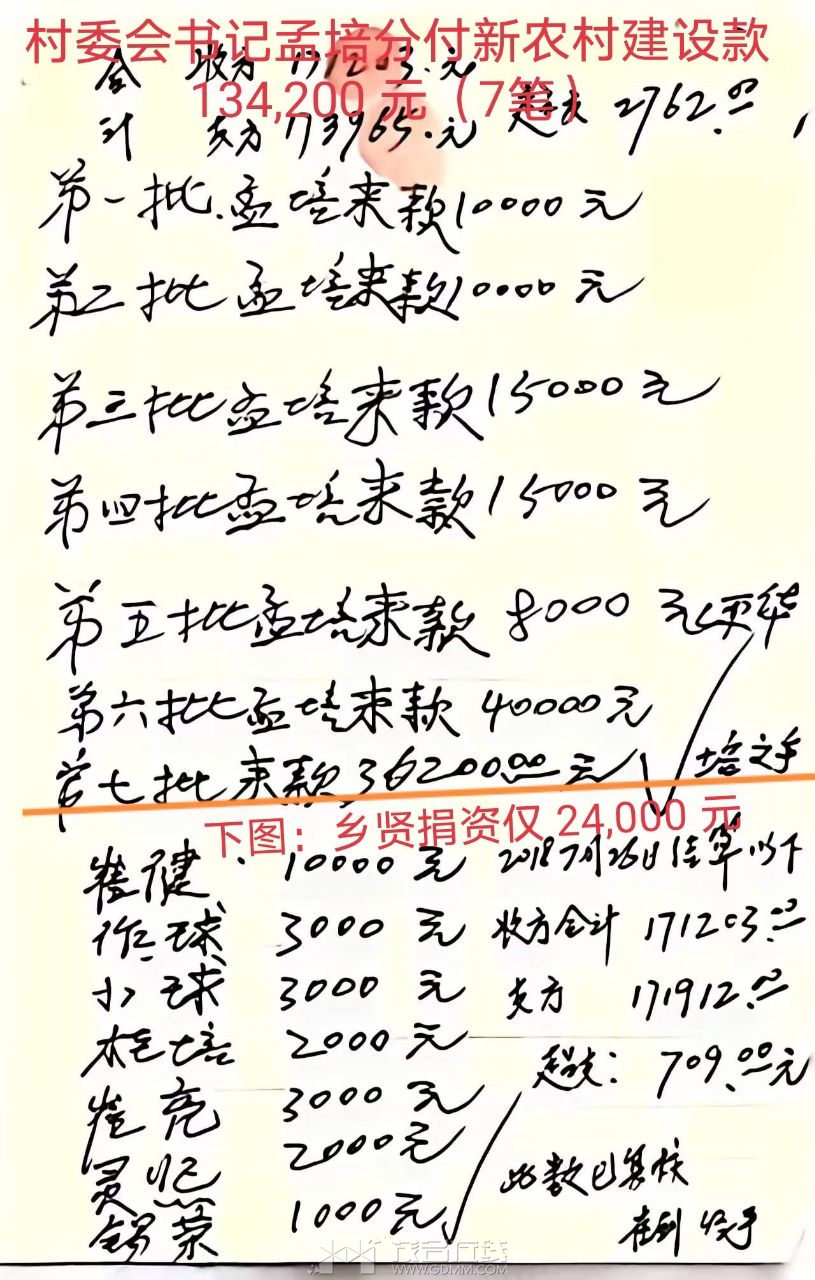 村委会书记孟培分付新农村建设款
134,200 元（7笔）
合 收方 171203.元
计 支方 173965.元 超支 2762.00
第一批.孟培来款10000元
第二批孟培来款10000元
第三批孟培来款15000元
第四批孟培来款15000元
第五批孟培来款 8000 元
第六批孟培来款 40000元
第七批来款36200.00元 培文手
下图：乡贤捐资仅 24,000 元
崔健 10000元 2018 7月26日结算以下
作球 3000 元 收方合计 171203.00
小球 3000 元 支方 171912.00
桂培 2000元 超支：709.00元
崔亮 3000元
2000元 此数已算核
锡荣 1000元
茂名在线
WWW.GDMM.COM